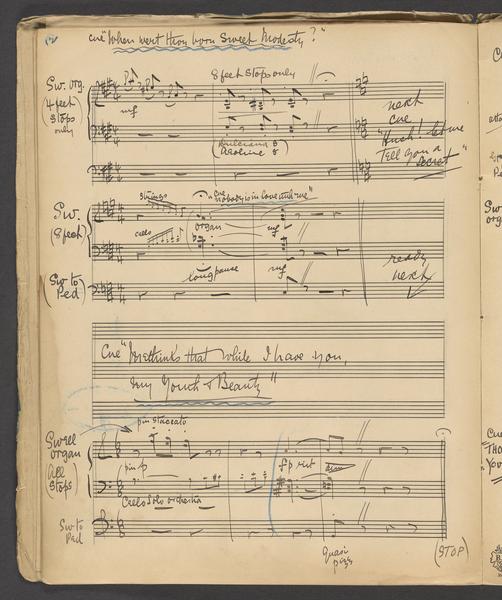 cue "When wert thou born Sweet Modesty?"
Sw. Org.
4 feet
Stops
only
8 feet Stops only
mf
(Dulciana 8
Aeoline 8)
next
cue
"Hush! let me
Tell you a
secret"
Sw.
(8 feet)
Strings
cue
"nobody is in love with me"
cello
organ
mf
long pause
mf
Sw to
Ped
ready
next
Cue "Methinks that while I have you,
my Youth & Beauty"
più staccato
Swell
organ
(all
stops)
più p
fp rit
dim
Cello Solo orchestra
Sw to
Ped
quasi
pizz
(STOP)
Cue
THO
You
Sw
org